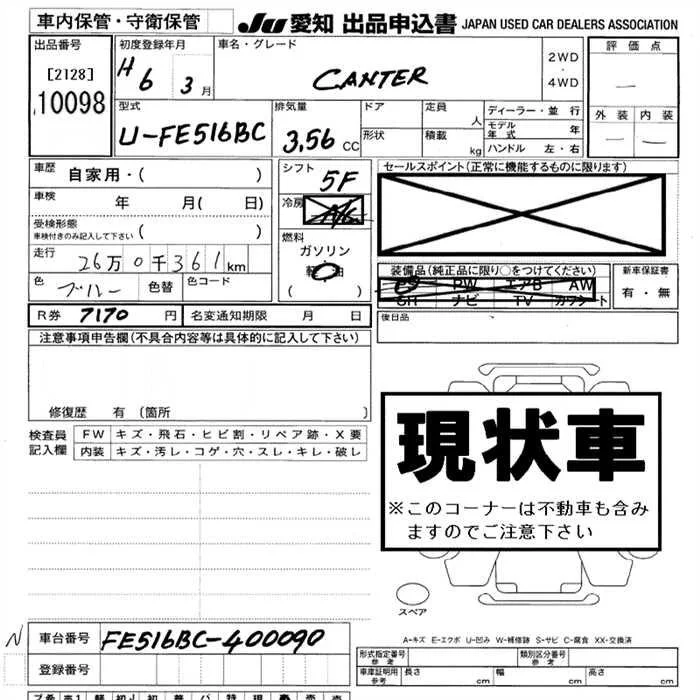 車内保管・守衛保管
JU 愛知 出品申込書 JAPAN USED CAR DEALERS ASSOCIATION
出品番号 初度登録年月 車名・グレード 評価点
[2128] H6 3月 CANTER 2WD・4WD —
10098 外装 内装
型式 排気量 ドア 定員 人 ディーラー・並行
U-FE516BC 3,56 CC 形状 積載 kg モデル年式 年
ハンドル 左・右 — —
車歴 自家用・( ) シフト 5F セールスポイント(正常に機能するものに限ります)
車検 年 月( 日) 冷房 A/C
受検形態
車検付きのみ記入して下さい ( ) 燃料 ガソリン
走行 26万0千361km 軽油
色 ブルー 色替 色コード ( )
装備品(純正品に限り○をつけてください) 新車保証書
PS PW エアB AW 有・無
SH ナビ TV カワシート
R券 7170 円 名変通知期限 月 日 後日品
注意事項申告欄(不具合内容等は具体的に記入して下さい)
修復歴 有 〔箇所 〕
検査員記入欄 FW キズ・飛石・ヒビ割・リペア跡・X要
内装 キズ・汚レ・コゲ・穴・スレ・キレ・破レ
現状車
※このコーナーは不動車も含み
ますのでご注意下さい
スペア
A-キズ E-エクボ U-凹み W-補修跡 S-サビ C-腐食 XX-交換済
N 車台番号 FE516BC-400090
登録番号
形式指定番号 参考 類別区分番号 参考
車庫証明用 参考 長さ cm 幅 cm 高さ cm